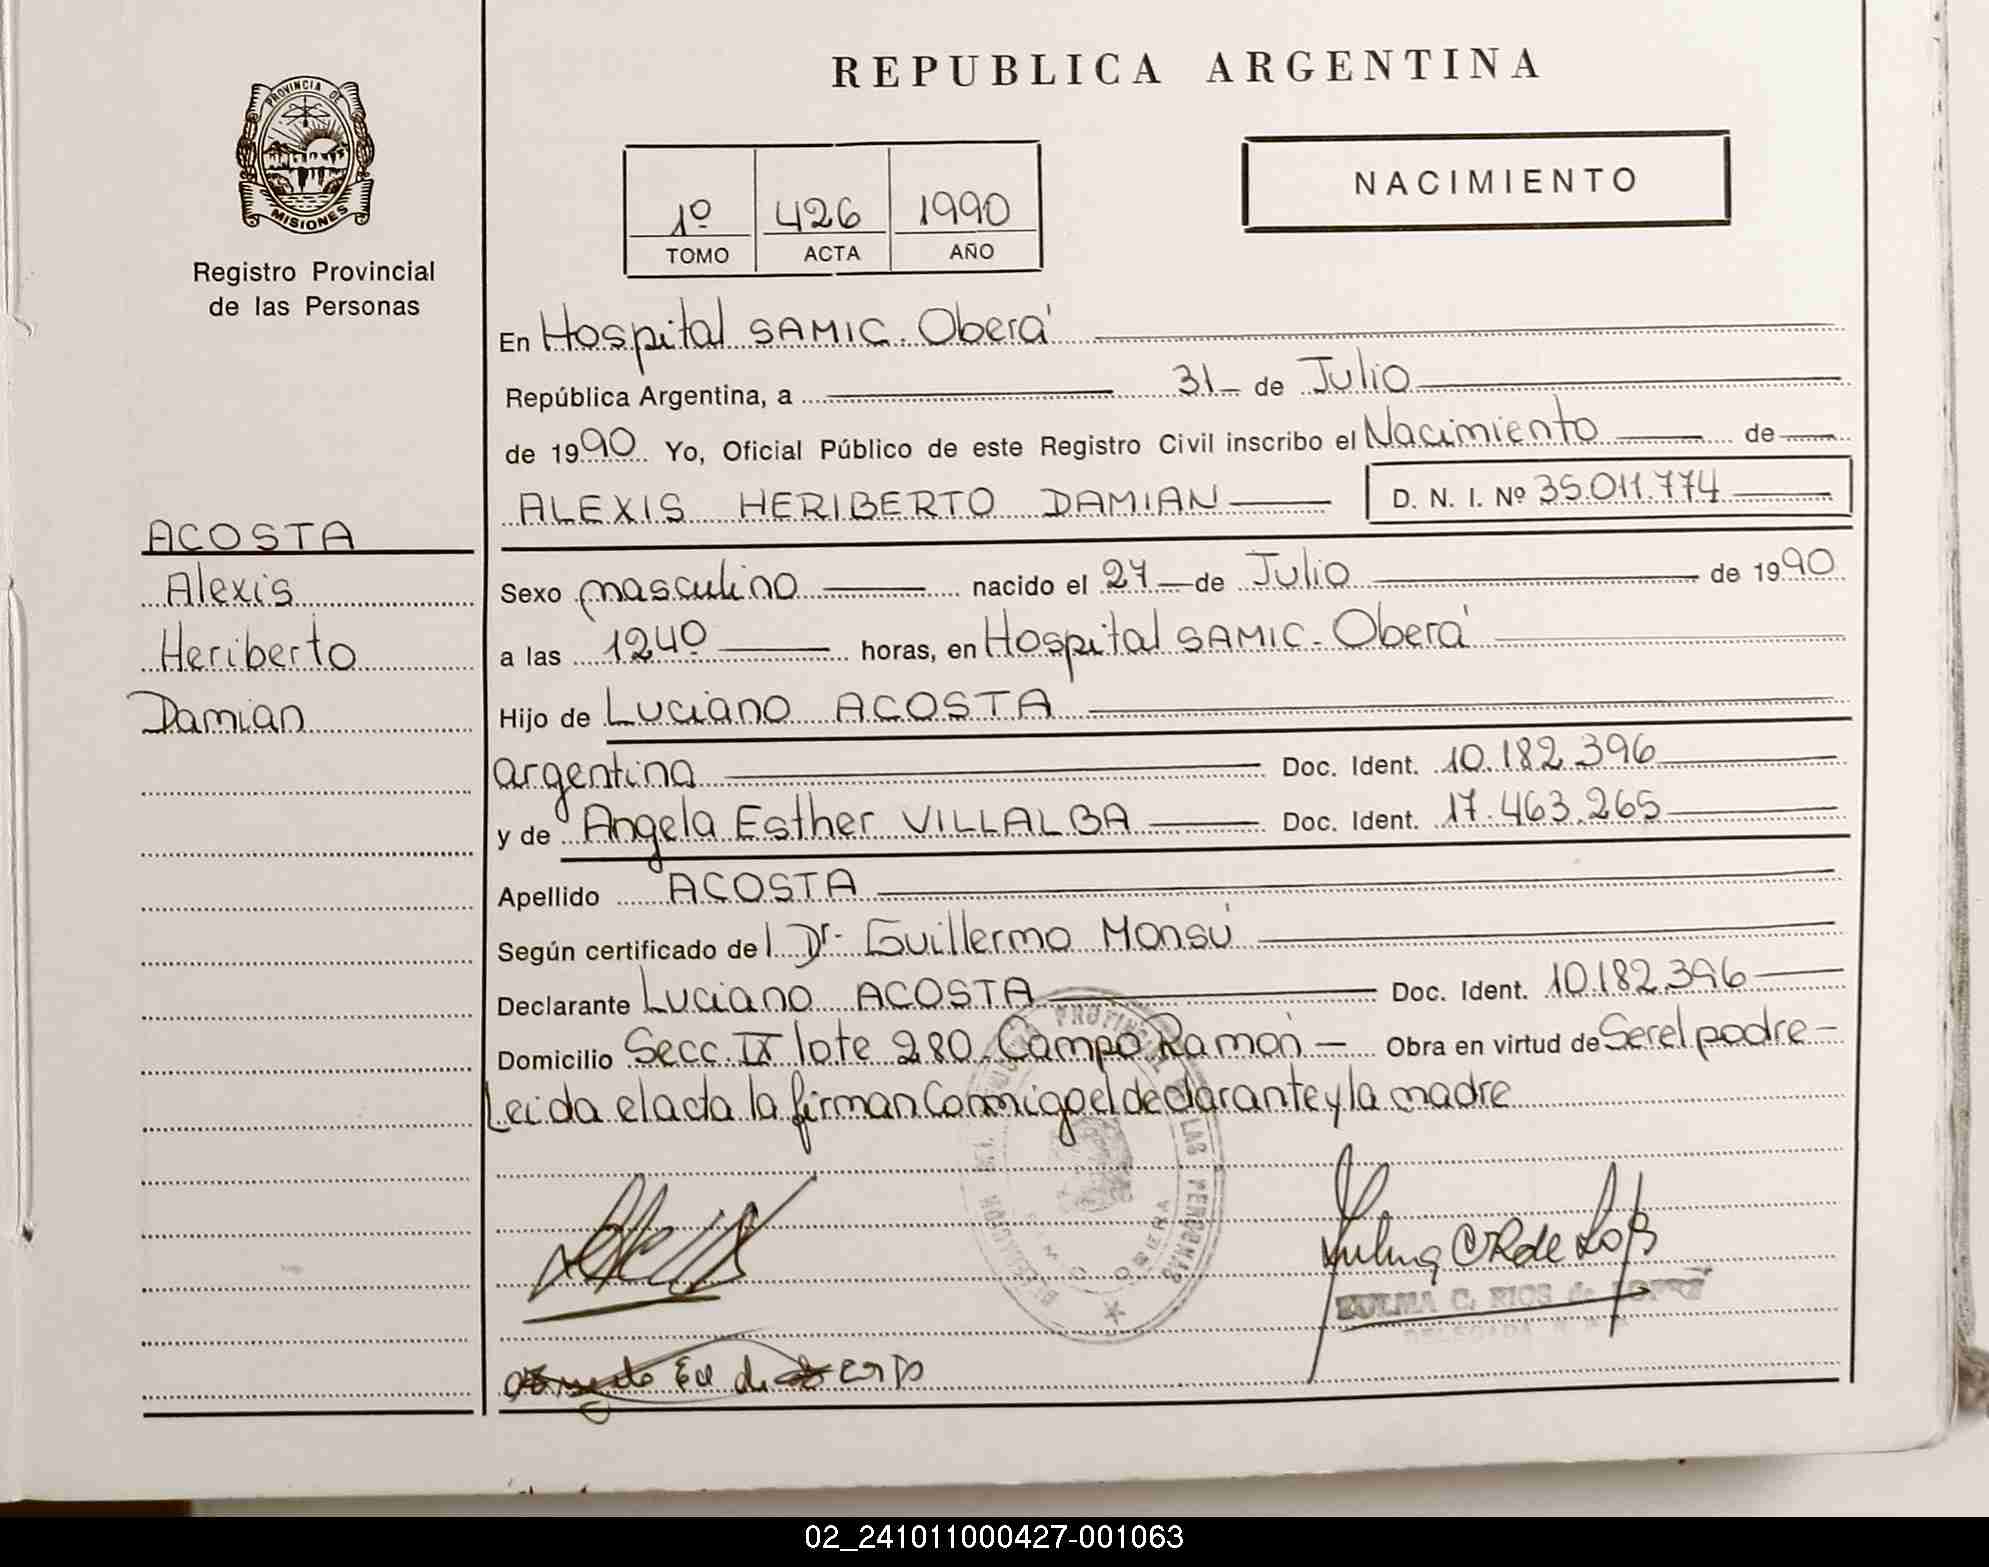 REPUBLICA ARGENTINA
PROVINCIA DE
MISIONES
Registro Provincial
de las Personas
NACIMIENTO
1º 426 1990
TOMO ACTA AÑO
En Hospital SAMIC. Oberá
República Argentina, a 31 de Julio
de 1990 Yo, Oficial Público de este Registro Civil inscribo el Nacimiento de
ALEXIS HERIBERTO DAMIAN D. N. I. Nº 35.011.774
ACOSTA
Alexis
Heriberto
Damian
Sexo masculino nacido el 27 de Julio de 1990
a las 1240 horas, en Hospital SAMIC. Oberá
Hijo de Luciano ACOSTA
argentina Doc. Ident. 10.182.396
y de Angela Esther VILLALBA Doc. Ident. 17.463.265
Apellido ACOSTA
Según certificado del Dr. Guillermo Monsú
Declarante Luciano ACOSTA Doc. Ident. 10.182.396
Domicilio Secc. IX lote 280. Campo Ramón Obra en virtud de Ser el padre
Leida el acta la firman Conmigo el declarante y la madre
LAS PERSONAS
OBERA
ZULMA C. RIOS de
02_241011000427-001063